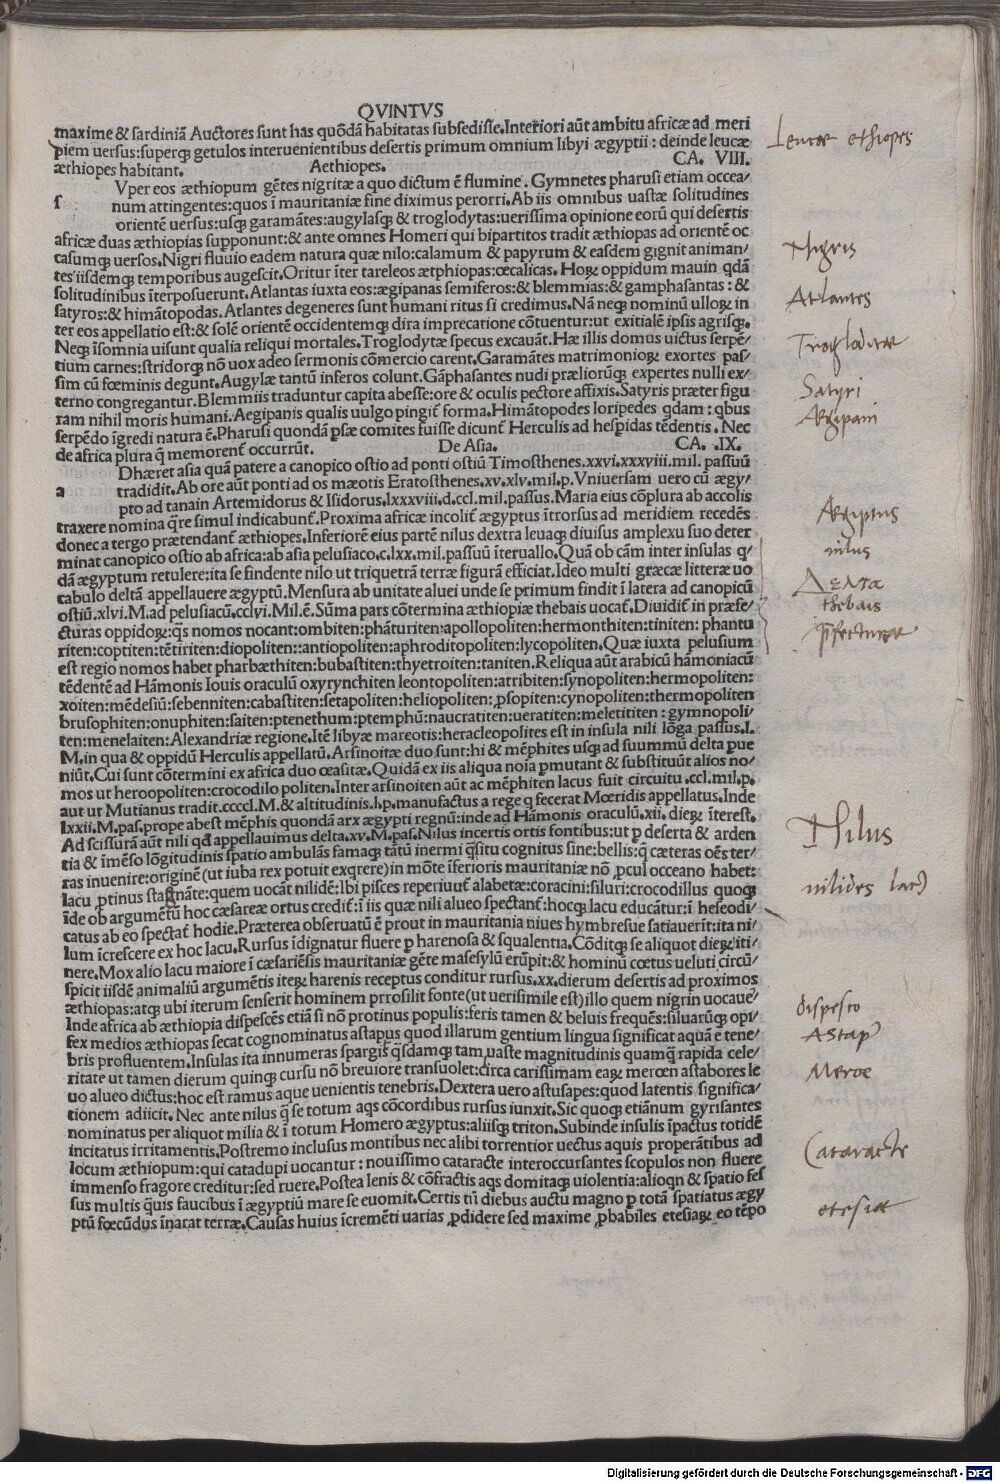 QVINTVS
maxime & sardiniã Auctores sunt has quõdã habitatas subsedisse.Interiori aũt ambitu africæ ad meri
piem uersus:superqȝ getulos interuenientibus desertis primum omnium libyi ægyptii : deinde leucæ
æthiopes habitant. Aethiopes. CA. VIII.
Vper eos æthiopum gẽtes nigritæ a quo dictum ẽ flumine. Gymnetes pharusi etiam occea/
s num attingentes:quos ĩ mauritaniæ fine diximus perorri.Ab iis omnibus uastæ solitudines
orientẽ uersus:usqȝ garamãtes:augylasqȝ & troglodytas:uerissima opinione eorũ qui desertis
africæ duas æthiopias supponunt:& ante omnes Homeri qui bipartitos tradit æthiopas ad orientẽ oc
casumqȝ uersos.Nigri fluuio eadem natura quæ nilo:calamum & papyrum & easdem gignit animan/
tes iisdemqȝ temporibus augescit.Oritur ĩter tareleos ætphiopas:œcalicas. Hoꝝ oppidum mauin qdã
solitudinibus ĩterposuerunt.Atlantas iuxta eos:ægipanas semiferos:& blemmias:& gamphasantas : &
satyros:& himãtopodas.Atlantes degeneres sunt humani ritus si credimus.Nã neqȝ nominũ ulloꝝ in
ter eos appellatio est:& solẽ orientẽ occidentemqȝ dira imprecatione cõtuentur:ut exitialẽ ipsis agrisqȝ.
Neqȝ ĩsomnia uisunt qualia reliqui mortales.Troglodytæ specus excauãt.Hæ illis domus uictus serpẽ/
tium carnes:stridorqȝ nõ uox adeo sermonis cõmercio carent.Garamãtes matrimonioꝝ exortes pas/
sim cũ fœminis degunt.Augylæ tantũ inferos colunt.Gãphasantes nudi præliorũqȝ expertes nulli ex/
terno congregantur.Blemmiis traduntur capita abesse:ore & oculis pectore affixis.Satyris præter figu
ram nihil moris humani.Aegipanis qualis uulgo pingit̃ forma.Himãtopodes loripedes qdam : qbus
serpẽdo ĩgredi natura ẽ.Pharusi quondã ꝑsæ comites fuisse dicunt̃ Herculis ad hesꝑidas tẽdentis . Nec
de africa plura q̃ memorent̃ occurrũt. De Asia. CA. .IX.
Dhæret asia quã patere a canopico ostio ad ponti ostiũ Timosthenes.xxvi.xxxviii.mil. passuũ
a tradidit.Ab ore aũt ponti ad os mæotis Eratosthenes.xv.xlv.mil.p.Vniuersam uero cũ ægy/
pto ad tanain Artemidorus & Isidorus.lxxxviii.d.ccl.mil.passus.Maria eius cõplura ab accolis
traxere nomina q̃re simul indicabunt̃.Proxima africæ incolit̃ ægyptus ĩtrorsus ad meridiem recedẽs
donec a tergo prætendant̃ æthiopes.Inferiorẽ eius partẽ nilus dextra leuaqȝ diuisus amplexu suo deter
minat canopico ostio ab africa:ab asia pelusiaco.c.lxx.mil.passuũ ĩteruallo.Quã ob cãm inter insulas q/
dã ægyptum retulere:ita se findente nilo ut triquetrã terræ figurã efficiat.Ideo multi græcæ litteræ uo
cabulo deltã appellauere ægyptũ.Mensura ab unitate aluei unde se primum findit ĩ latera ad canopicũ
ostiũ.xlvi.M.ad pelusiacũ.cclvi.Mil.ẽ.Sũma pars cõtermina æthiopiæ thebais uocat̃.Diuidit̃ in præfe/
cturas oppidoꝝ:q̃s nomos nocant:ombiten:phãturiten:apollopoliten:hermonthiten:tiniten: phantu
riten:coptiten:tẽtiriten:diopoliten::antiopoliten:aphroditopoliten:lycopoliten.Quæ iuxta pelusium
est regio nomos habet pharbæthiten:bubastiten:thyetroiten:taniten.Reliqua aũt arabicũ hãmoniacũ
tẽdentẽ ad Hãmonis Iouis oraculũ oxyrynchiten leontopoliten:atribiten:synopoliten:hermopoliten:
xoiten:mẽdesiũ:sebenniten:cabastiten:setapoliten:heliopoliten:ꝓsopiten:cynopoliten:thermopoliten
brusophiten:onuphiten:saiten:ptenethum:ptemphũ:naucratiten:ueratiten:meletititen : gymnopoli/
ten:menelaiten:Alexandriæ regione.Itẽ libyæ mareotis:heracleopolites est in insula nili lõga passus.I.
M.in qua & oppidũ Herculis appellatũ.Arsinoitæ duo sunt:hi & mẽphites usqȝ ad suummũ delta ꝑue
niũt.Cui sunt cõtermini ex africa duo œasitæ.Quidã ex iis aliqua noĩa ꝑmutant & substituũt alios no/
mos ut heroopoliten:crocodilo politen.Inter arsinoiten aũt ac mẽphiten lacus fuit circuitu .ccl.mil.p.
aut ut Mutianus tradit.ccccl.M.& altitudinis.l.p.manufactus a rege q fecerat Mœridis appellatus.Inde
lxxii.M.pas.prope abest mẽphis quondã arx ægypti regnũ:inde ad Hãmonis oraculũ.xii. dieꝝ ĩterest.
Ad scissurã aũt nili qđ appellauimus delta.xv.M.pas.Nilus incertis ortis fontibus:ut ꝑ deserta & arden
tia & ĩmẽso lõgitudinis spatio ambulãs famaqȝ tãtũ inermi q̃situ cognitus sine:bellis:q̃ cæteras oẽs ter/
ras inuenire:originẽ(ut iuba rex potuit exqrere)in mõte ĩferioris mauritaniæ nõ ꝓcul occeano habet:
lacu ꝓtinus stagnãte:quem uocãt nilidẽ:Ibi pisces reperiuut̃ alabetæ:coracini:siluri:crocodillus quoqȝ
ĩde ob argumẽtũ hoc cæsareæ ortus credit̃:ĩ iis quæ nili alueo spectant̃:hocqȝ lacu educãtur:ĩ heseodi/
catus ab eo spectat̃ hodie.Præterea obseruatũ ẽ prout in mauritania niues hymbresue satiauerĩt:ita ni/
lum ĩcrescere ex hoc lacu.Rursus ĩdignatur fluere ꝑ harenosa & squalentia.Cõditqȝ se aliquot dieꝝ:iti/
nere.Mox alio lacu maiore ĩ cæsariẽsis mauritaniæ gẽte masesylũ erũpit:& hominũ cœtus ueluti circũ/
spicit iisdẽ animaliũ argumẽtis iteꝝ harenis receptus conditur rursus.xx.dierum desertis ad proximos
æthiopas:atqȝ ubi iterum senserit hominem prrosilit fonte(ut uerisimile est)illo quem nigrin uocaue᷉/
Inde africa ab æthiopia dispescẽs etiã si nõ protinus populis:feris tamen & beluis frequẽs:siluarũqȝ opi/
fex medios æthiopas secat cognominatus astapus quod illarum gentium lingua significat aquã e tene/
bris profluentem.Insulas ita innumeras spargis q̃sdamqȝ tam uaste magnitudinis quamq̃ rapida cele/
ritate ut tamen dierum quinqȝ cursu nõ breuiore transuolet:circa carissimam eaꝝ merœn astabores le
uo alueo dictus:hoc est ramus aque uenientis tenebris.Dextera uero astusapes:quod latentis significa/
tionem adiicit. Nec ante nilus q̃ se totum aqs cõcordibus rursus iunxit.Sic quoqȝ etiãnum gyrisantes
nominatus per aliquot milia & ĩ totum Homero ægyptus:aliisqȝ triton.Subinde insulis ĩpactus totidẽ
incitatus irritamentis.Postremo inclusus montibus nec alibi torrentior uectus aquis properãtibus ad
locum æthiopum:qui catadupi uocantur : nouissimo cataracte interoccursantes scopulos non fluere
immenso fragore creditur:sed ruere.Postea lenis & cõfractis aqs domitaqȝ uiolentia:alioqn & spatio fes
sus multis q̃uis faucibus ĩ ægyptiũ mare se euomit.Certis tũ diebus auctu magno ꝑ totã spatiatus ægy
ptũ fœcũdus ĩnatat terræ.Causas huius ĩcremẽti uarias ꝓdidere sed maxime ꝓbabiles etesiaꝝ eo tẽpo
Leucæ ethiopes
Nigris
Atlantes
Trogloditæ
Satyri
Ægipani
Ægiptus
nilus
Δελτα
thebais
p̃fecturæ
Nilus
nilides lac9
dispesco
Astap9
Meroe
Cataracte
etesiæ
Digitalisierung gefördert durch die Deutsche Forschungsgemeinschaft - DFG